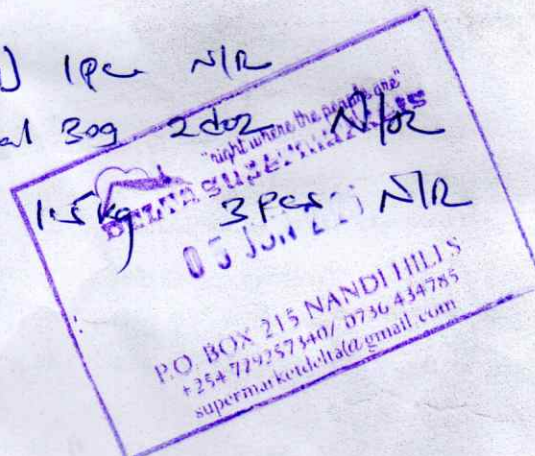 1pc N/R
30g 2doz N/R
1.5kg 3Pcs N/R
"right where the people are"
05 JUN
P.O. BOX 215 NANDI HILLS
+254 729257340/ 0736 434785
supermarketdelta@gmail.com